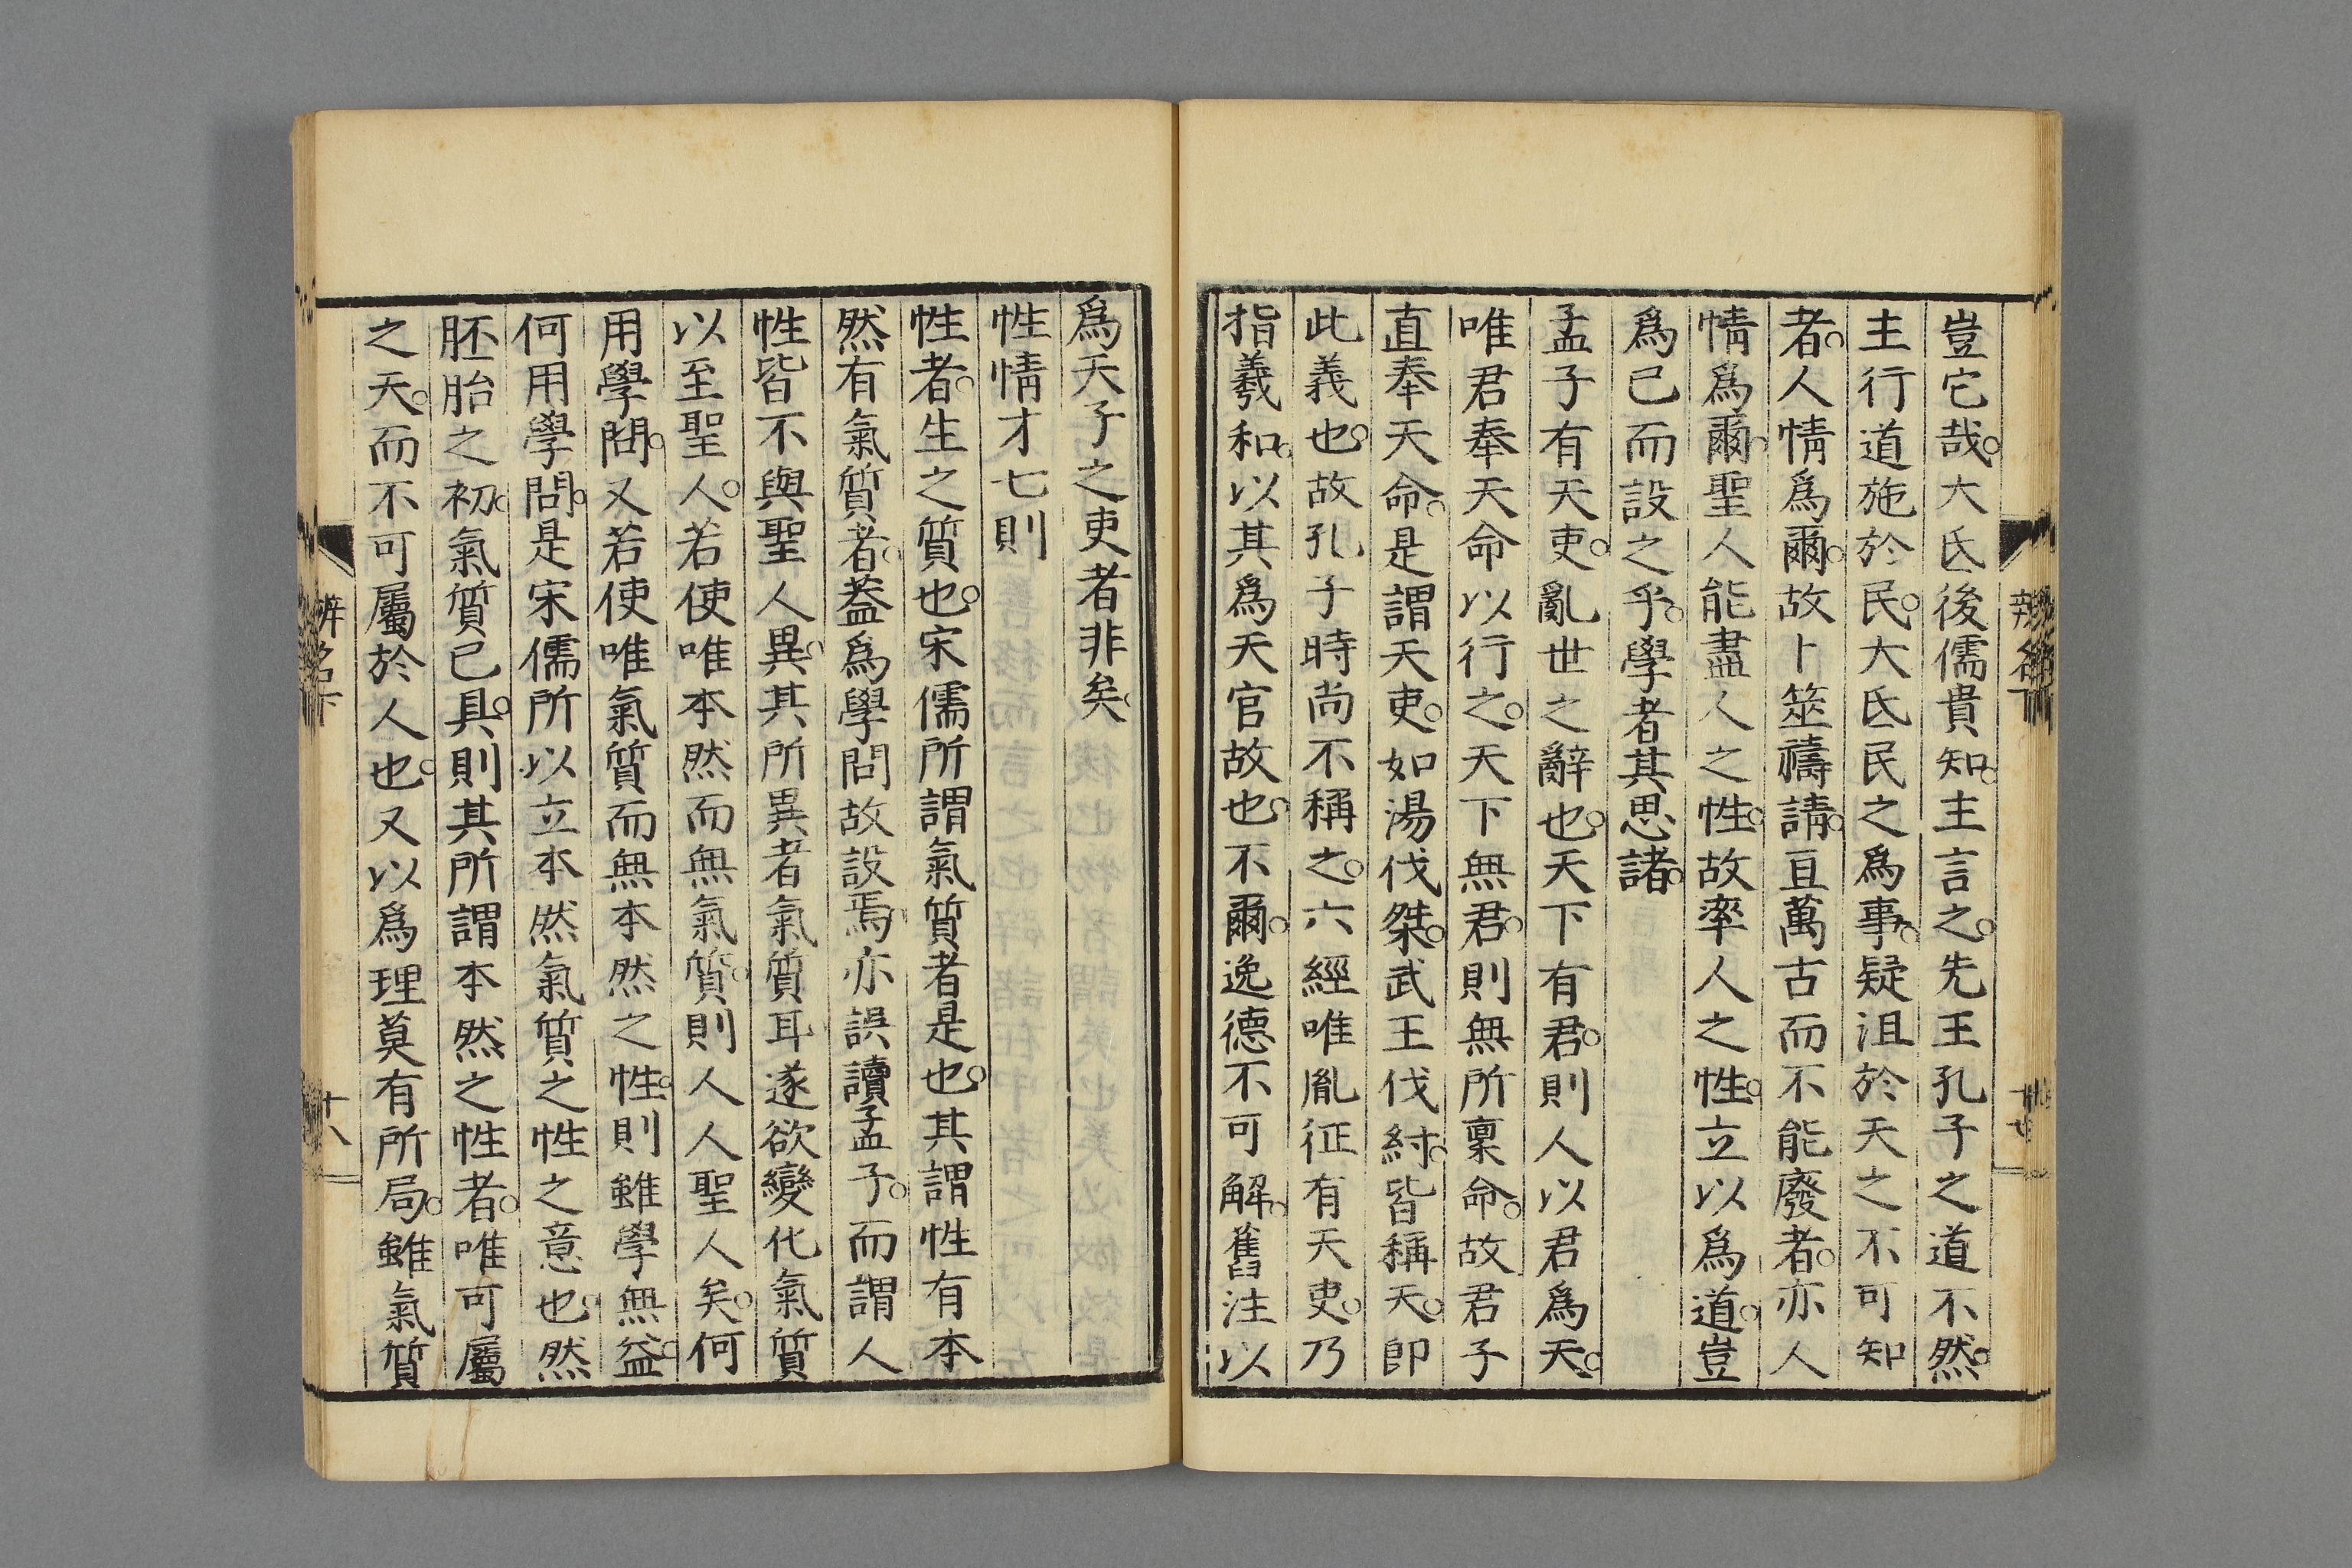 豈它哉。大氐後儒貴知。主言之。先王孔子之道不然。
主行道施於民。大氐民之爲事。疑沮於天之不可知
者。人情爲爾。故卜筮禱請。亘萬古而不能廢者。亦人
情爲爾。聖人能盡人之性。故率人之性。立以爲道。豈
爲己而設之乎。學者其思諸。
孟子有天吏。亂世之辭也。天下有君。則人以君爲天。
唯君奉天命以行之。天下無君。則無所稟命。故君子
直奉天命。是謂天吏。如湯伐桀。武王伐紂。皆稱天。即
此義也。故孔子時尚不稱之。六經唯胤征有天吏。乃
指羲和。以其爲天官故也。不爾。逸德不可解。舊注以
爲天子之吏者非矣。
性情才七則
性者。生之質也。宋儒所謂氣質者是也。其謂性有本
然有氣質者。葢爲學問故設焉。亦誤讀孟子。而謂人
性皆不與聖人異。其所異者氣質耳。遂欲變化氣質
以至聖人。若使唯本然而無氣質。則人人聖人矣。何
用學問。又若使唯氣質而無本然之性。則雖學無益。
何用學問。是宋儒所以立本然氣質之性之意也。然
胚胎之初。氣質已具。則其所謂本然之性者。唯可屬
之天。而不可屬於人也。又以爲理莫有所局。雖氣質
辨名下
十八